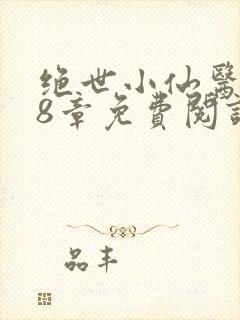 绝世小仙醫
8章免費閱讀
品丰